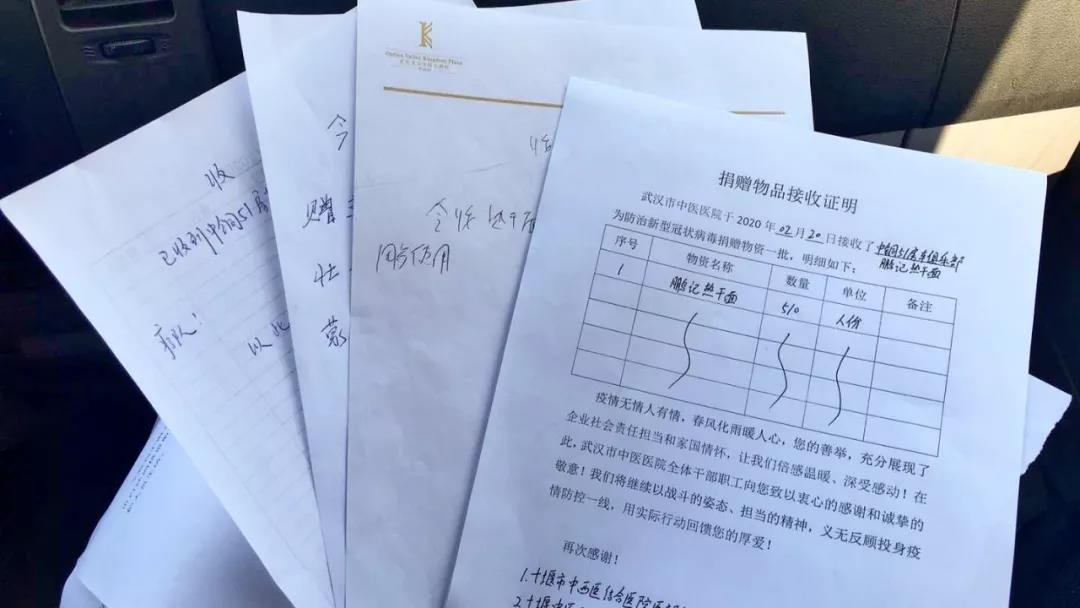 收
已收到中国51房
车队！
以此
今
赠
壮
蒙
Kingdom Plaza
收
今收热干面
同志使用
捐赠物品接收证明
武汉市中医医院于2020年02月20日接收了中国51房车俱乐部
鹏记热干面
为防治新型冠状病毒捐赠物资一批，明细如下：
序号 物资名称 数量 单位 备注
1 鹏记热干面 510 人份
疫情无情人有情，春风化雨暖人心，您的善举，充分展现了
企业社会责任担当和家国情怀，让我们倍感温暖、深受感动！在
此，武汉市中医医院全体干部职工向您致以衷心的感谢和诚挚的
敬意！我们将继续以战斗的姿态、担当的精神，义无反顾投身疫
情防控一线，用实际行动回馈您的厚爱！
再次感谢！
1.十堰市中西医结合医院医
2.十堰